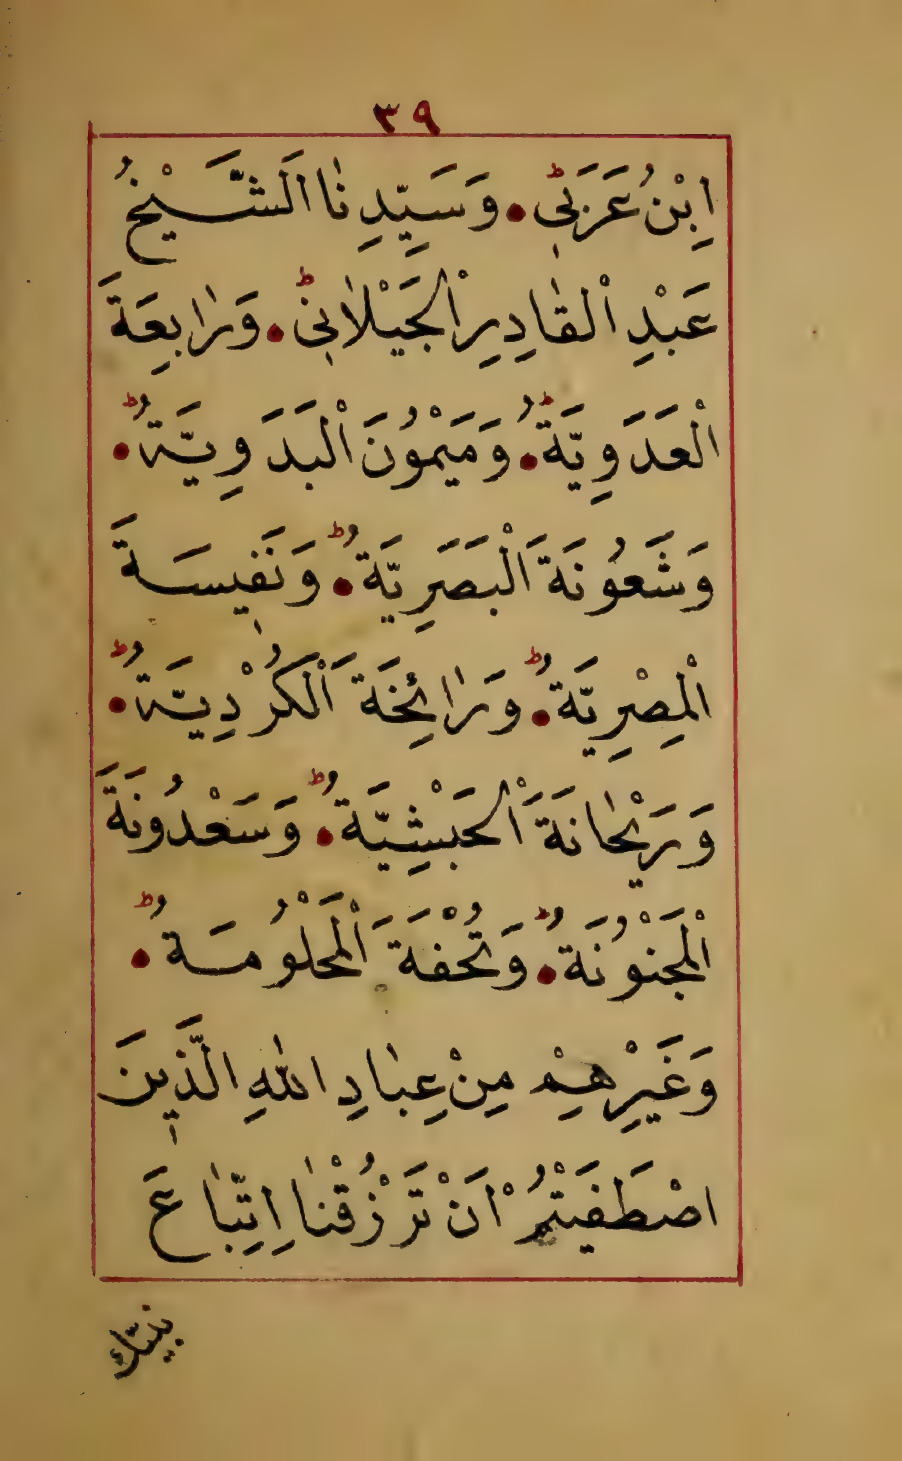 ٣٩
اِبْنُ عَرَبِىّ ط وَسَيِّدِنَا الشَّيْخُ
عَبْدِ الْقَادِرِ الْجَيْلَانِىّ ط وَرَابِعَةَ
الْعَدَوِيَّةُ ط وَمَيْمُونَ الْبَدَوِيَّةُ ط
وَشَعُونَةَ الْبَصَرِيَّةُ ط وَنَفِيسَةَ
الْمِصْرِيَّةُ ط وَرَائِحَةَ الْكُرْدِيَّةُ ط
وَرَيْحَانَةَ الْحَبْشِيَّةُ ط وَسَعْدُونَةَ
الْمَجْنُونَةُ ط وَتُحْفَةَ الْمَحْلُومَةُ ط
وَغَيْرِهِمْ مِنْ عِبَادِ اللهِ الَّذِينَ
اصْطَفَيْتَهُمْ اَنْ تَرْزُقْنَا اِتِّبَاعَ
نبيك